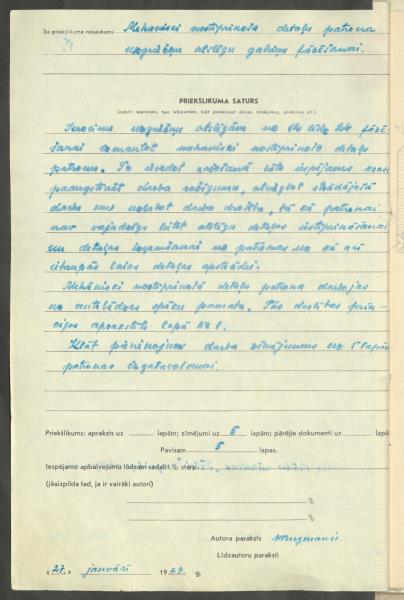 Īss priekšlikuma nosaukums Mehaniski nostiprinoša detaļu patrona
uzgriežņu atslēgu galviņu fazēšanai.
PRIEKŠLIKUMA SATURS
(rakstīt saprotami, bez labojumiem, klāt pievienojot skices, zīmējumus, aprēķinus utt.)
Ierosinu uzgriežņu atslēgām no līdz
šanai izmantot mehaniski nostiprinošo detaļu
patronu. To ieviešot ražošanā būtu iespējams
paaugstināt darba ražīgumu, atvieglot strādājošā
darbu un uzlabot darba drošību, tā kā patronai
nav vajadzīgs lietot atslēgu detaļas iestiprināšanai
un detaļas izņemšanai no patronas no kā arī
ietaupās laiks detaļas apstrādei.
Mehāniski nostiprinošā detaļu patrona darbojas
uz centrbēdzes spēku pamata. Tās darbības prin-
cips aprakstīts lapā Nr 1.
Klāt pievienojam darba zīmējumus uz 5 lapām
patronas izgatavošanai.
Priekšlikums: apraksts uz lapām; zīmējumi uz 5 lapām; pārējie dokumenti uz lapā
Pavisam 5 lapas.
Iespējamo apbalvojumu lūdzam sadalīt % starp
(jāaizpilda tad, ja ir vairāki autori)
%
%
Autora paraksts
Līdzautoru paraksti
„27." janvārī 1969. g.